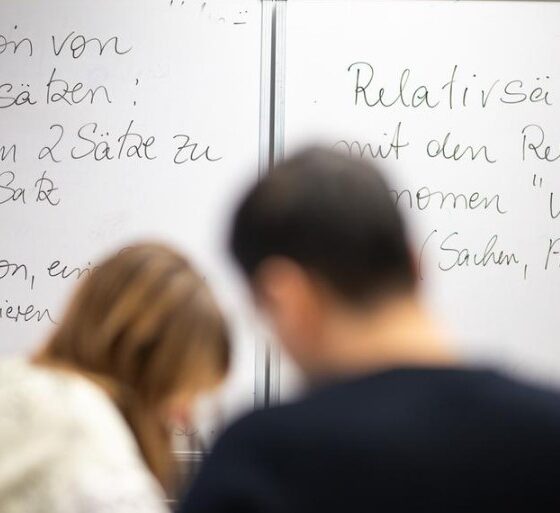 on von
sätzen :
n 2 Sätze zu
Satz
on, ein
ieren
Relativsä
mit den Re
nomen "
(Sachen,